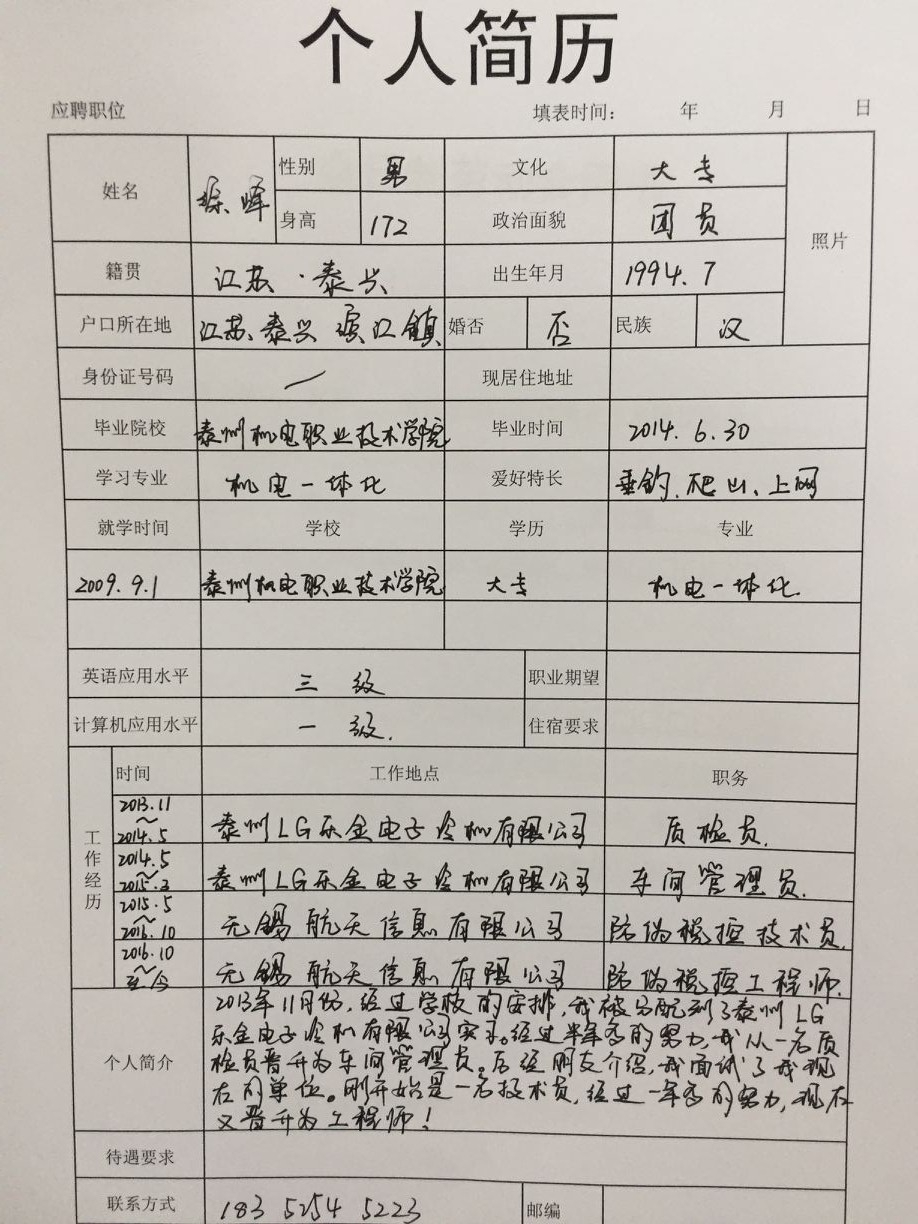 个人简历
应聘职位 填表时间: 年 月 日
姓名 峰 性别 男 文化 大专 照片
身高 172 政治面貌 团员
籍贯 江苏·泰兴 出生年月 1994.7
户口所在地 江苏泰兴滨江镇 婚否 否 民族 汉
身份证号码 / 现居住地址
毕业院校 泰州机电职业技术学院 毕业时间 2014.6.30
学习专业 机电一体化 爱好特长 垂钓、爬山、上网
就学时间 学校 学历 专业
2009.9.1 泰州机电职业技术学院 大专 机电一体化.
英语应用水平 三级 职业期望
计算机应用水平 一级. 住宿要求
工作经历 时间 工作地点 职务
2013.11~2014.5 泰州LG乐金电子冷机有限公司 质检员.
2014.5~2015.3 泰州LG乐金电子冷机有限公司 车间管理员.
2015.5~2016.10 无锡航天信息有限公司 防伪税控技术员.
2016.10~至今 无锡航天信息有限公司 防伪税控工程师.
个人简介 2013年11月份,经过学校的安排,我被分配到了泰州LG
乐金电子冷机有限公司实习。经过半年多的努力,我从一名质
检员晋升为车间管理员。后经朋友介绍,我面试了我现
在的单位。刚开始是一名技术员,经过一年多的努力,现在
又晋升为工程师!
待遇要求
联系方式 183 5254 5223 邮编